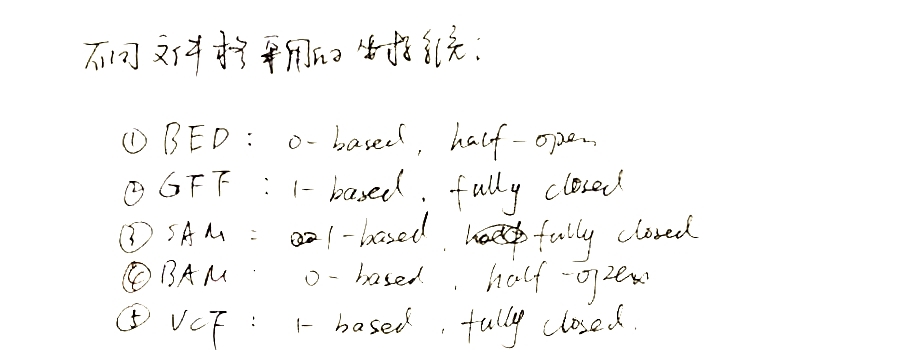 不同文件格采用的坐标系统:
① BED: 0-based, half-open
② GFF: 1-based, fully closed
③ SAM: 1-based, fully closed
④ BAM: 0-based, half-open
⑤ VCF: 1-based, fully closed.